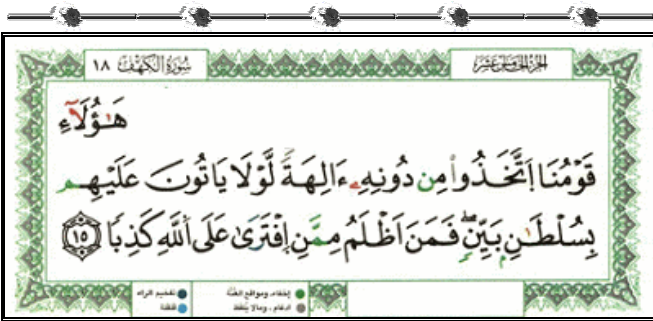 الجزء الخامس عشر سورة الكهف ١٨
هَٰٓؤُلَآءِ
قَوْمُنَا اَتَّخَذُواْ مِن دُونِهِۦٓ ءَالِهَةٗ لَّوْلَا يَاتُونَ عَلَيْهِم
بِسُلْطَٰنِۢ بَيِّنٖۖ فَمَنَ اَظْلَمُ مِمَّنِ اِفْتَرَىٰ عَلَى اَللَّهِ كَذِبٗا ١٥
إخفاء، ومواقع الغنة تفخيم الراء
ادغام، ومالا يلفظ قلقلة